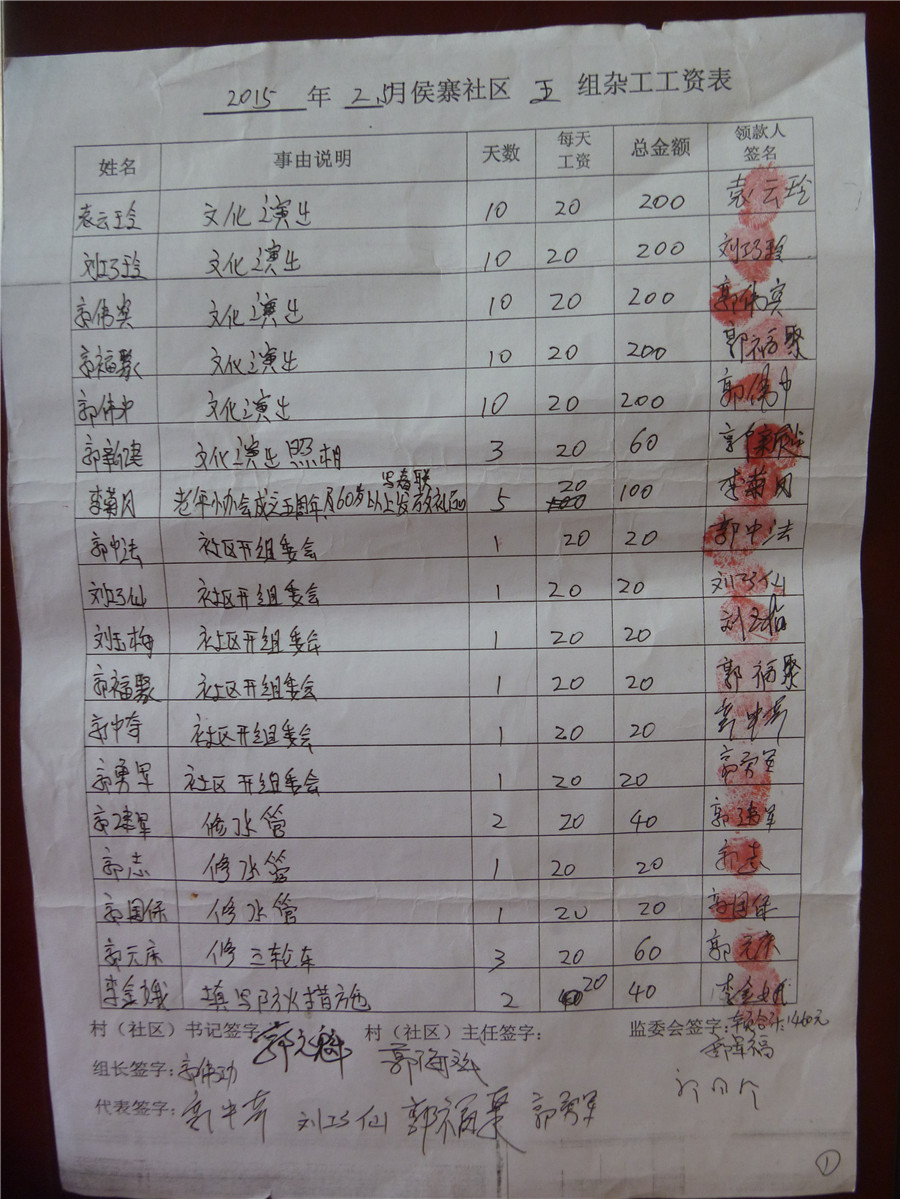 2015 年 2.5月侯寨社区 五 组杂工工资表
姓名 事由说明 天数 每天工资 总金额 领款人签名
袁云玲 文化演出 10 20 200 袁云玲
刘巧玲 文化演出 10 20 200 刘巧玲
郭伟宾 文化演出 10 20 200 郭伟宾
郭福聚 文化演出 10 20 200 郭福聚
郭伟中 文化演出 10 20 200 郭伟中
郭新建 文化演出照相 3 20 60
李菊月 老年协会成立五周年及60岁以上发放礼品 写春联 5 20 100 李菊月
郭中法 社区开组委会 1 20 20 郭中法
刘巧仙 社区开组委会 1 20 20 刘巧仙
刘玉梅 社区开组委会 1 20 20 刘玉梅
郭福聚 社区开组委会 1 20 20 郭福聚
郭中奇 社区开组委会 1 20 20 郭中奇
郭勇军 社区开组委会 1 20 20 郭勇军
郭建军 修水管 2 20 40 郭建军
郭志 修水管 1 20 20 郭志
郭国保 修水管 1 20 20 郭国保
郭元庆 修三轮车 3 20 60 郭元庆
李金娥 填写防火措施 2 20 40 李金娥
村（社区）书记签字: 村（社区）主任签字: 监委会签字: 合计:1460元
郭军福
组长签字: 郭伟功
代表签字: 郭中奇 刘巧仙 郭福聚 郭勇军
1